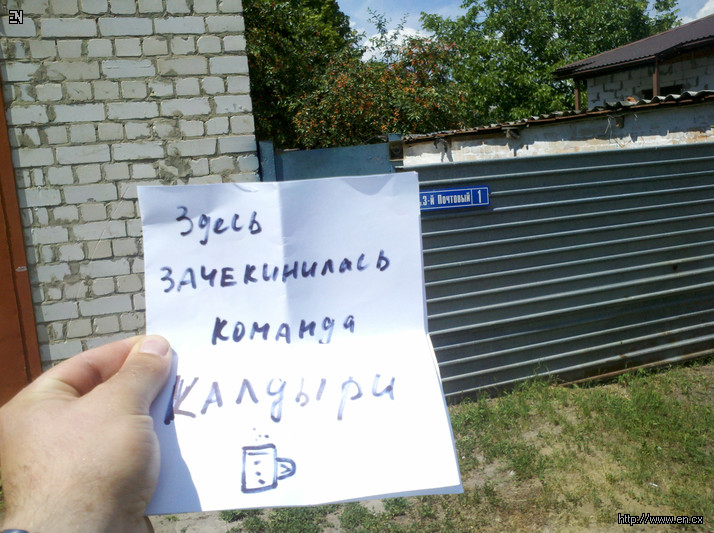 EN
3-й Почтовый 1
Здесь
ЗАЧЕКИНИЛась
КОМАНДА
КАЛДЫРИ
http://www.en.cx